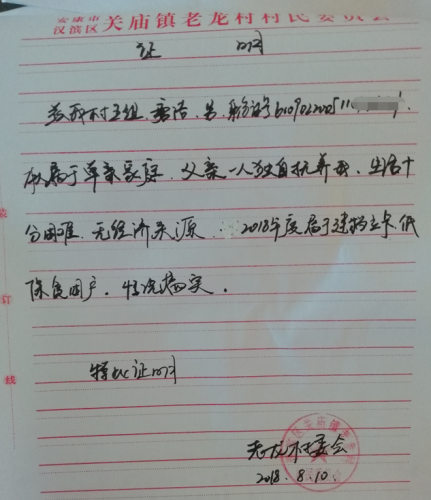 安康市
汉滨区 关庙镇老龙村村民委员会
证 明
兹我村五组, 男, 身份证号610902200511
属于单亲家庭, 父亲一人独自抚养我, 生活十
分困难, 无经济来源 2018年度属于建档立卡低
保贫困户, 情况属实.
特此证明
老龙村委会
2018.8.10.
装
订
线